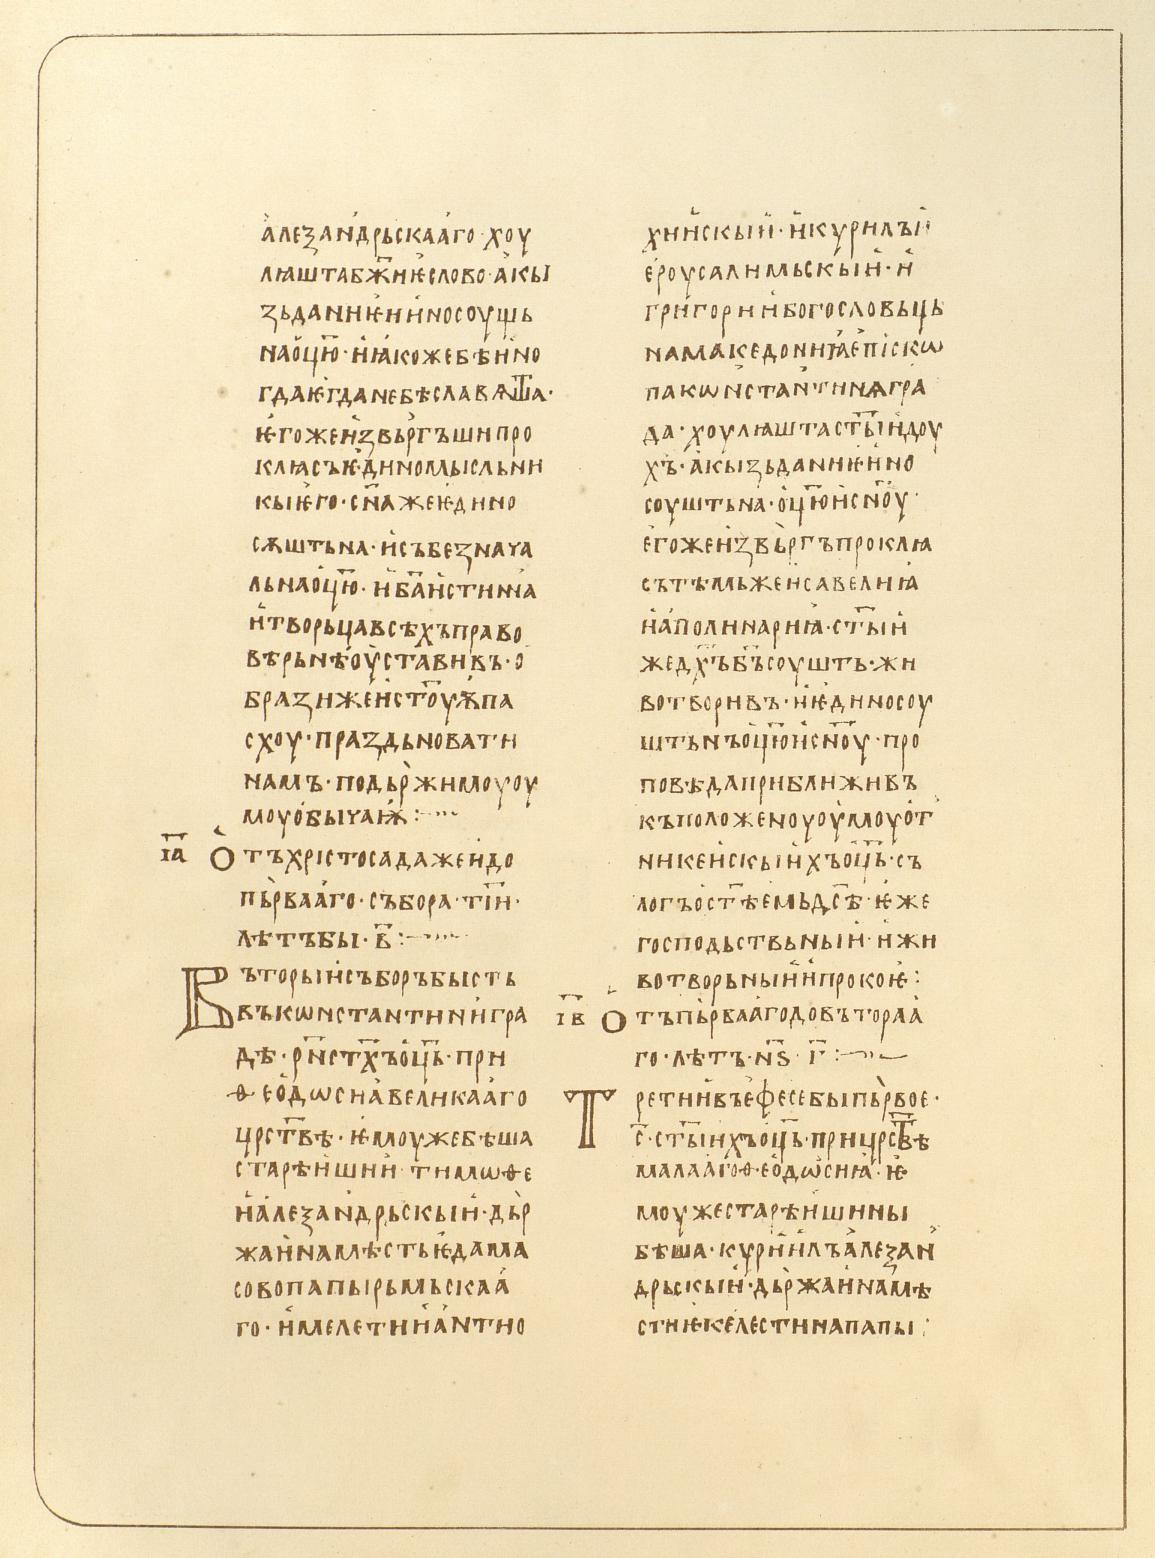 алеѯаньдрьскааго хоу
лꙗштабж҃иѥслово·акꙑ
зьданиѥ·иинносоущь
наоц҃ю·иꙗкожебѣино
гдаѥгданебѣславѧшт҃а·
ѥгожеизвьргъшипро
клꙗсъѥдиномꙑсльни
кꙑѥго·сн҃ажеѥдино
сѫштьна·исъбезнача
льнаоц҃ю·иба҃истиньна
итворьцавсѣхъправо
вѣрьнѣоуставивъ·о
бразижеист҃оуѭпа
схоу·праздьновати
намъ·подьржимоуоу
моуобꙑчаѭ:·~
іа҃ Отъхрістосадажеидо
пьрвааго·събора·ті҃и·
лѣтъбꙑ·в҃:·~
Въторꙑисъборъбꙑсть
въкѡнстантинигра
дѣ·рн҃ст҃хъоц҃ь·при
ѳеодѡсиавеликааго
црст҃вѣ·ѥмоужебѣша
старѣишии тимѡѳе
иалеѯандрьскꙑи·дьр
жаинамѣстьѥдама
совопапꙑрьмьскаа
го·имелетииантио
хиискꙑи·икурилъи
ероусалимьскꙑи·и
григориибогословьць
намакедониꙗепіскѡ
пакѡнстантинѧгра
да·хоулꙗштаст҃ꙑидоу
хъ·акꙑзьданиѥ·ино
соуштьна·оц҃юисн҃оу·
егожеизвьргъпроклꙗ
сътѣмьжеисавелиꙗ
иаполинариꙗ·ст҃ꙑи
жедх҃ъб҃ъсоушть·жи
вотворивъ·иѥдиносоу
штьнъоц҃юисн҃оу·про
повѣдаприближивъ
къположеноуоумоуот
никеискꙑихъоц҃ь·съ
логъост҃ѣемьдс҃ѣ·ѥже
господьствьнꙑи·ижи
вотворьнꙑиипрокоѥ:
ів҃ Отъпьрваагодовътораа
го·лѣтъ·нѕ҃ г҃:·~
Третиивъефесебꙑпьрвое·
с҃·ст҃ꙑихъоц҃ь·прицрст҃вѣ
малаагоѳеодѡсиꙗ·ѥ
моужестарѣишинꙑ
бѣша·куриилъалеѯан
дрьскꙑи·дьржаинамѣ
стиѥкелестинапапꙑ: